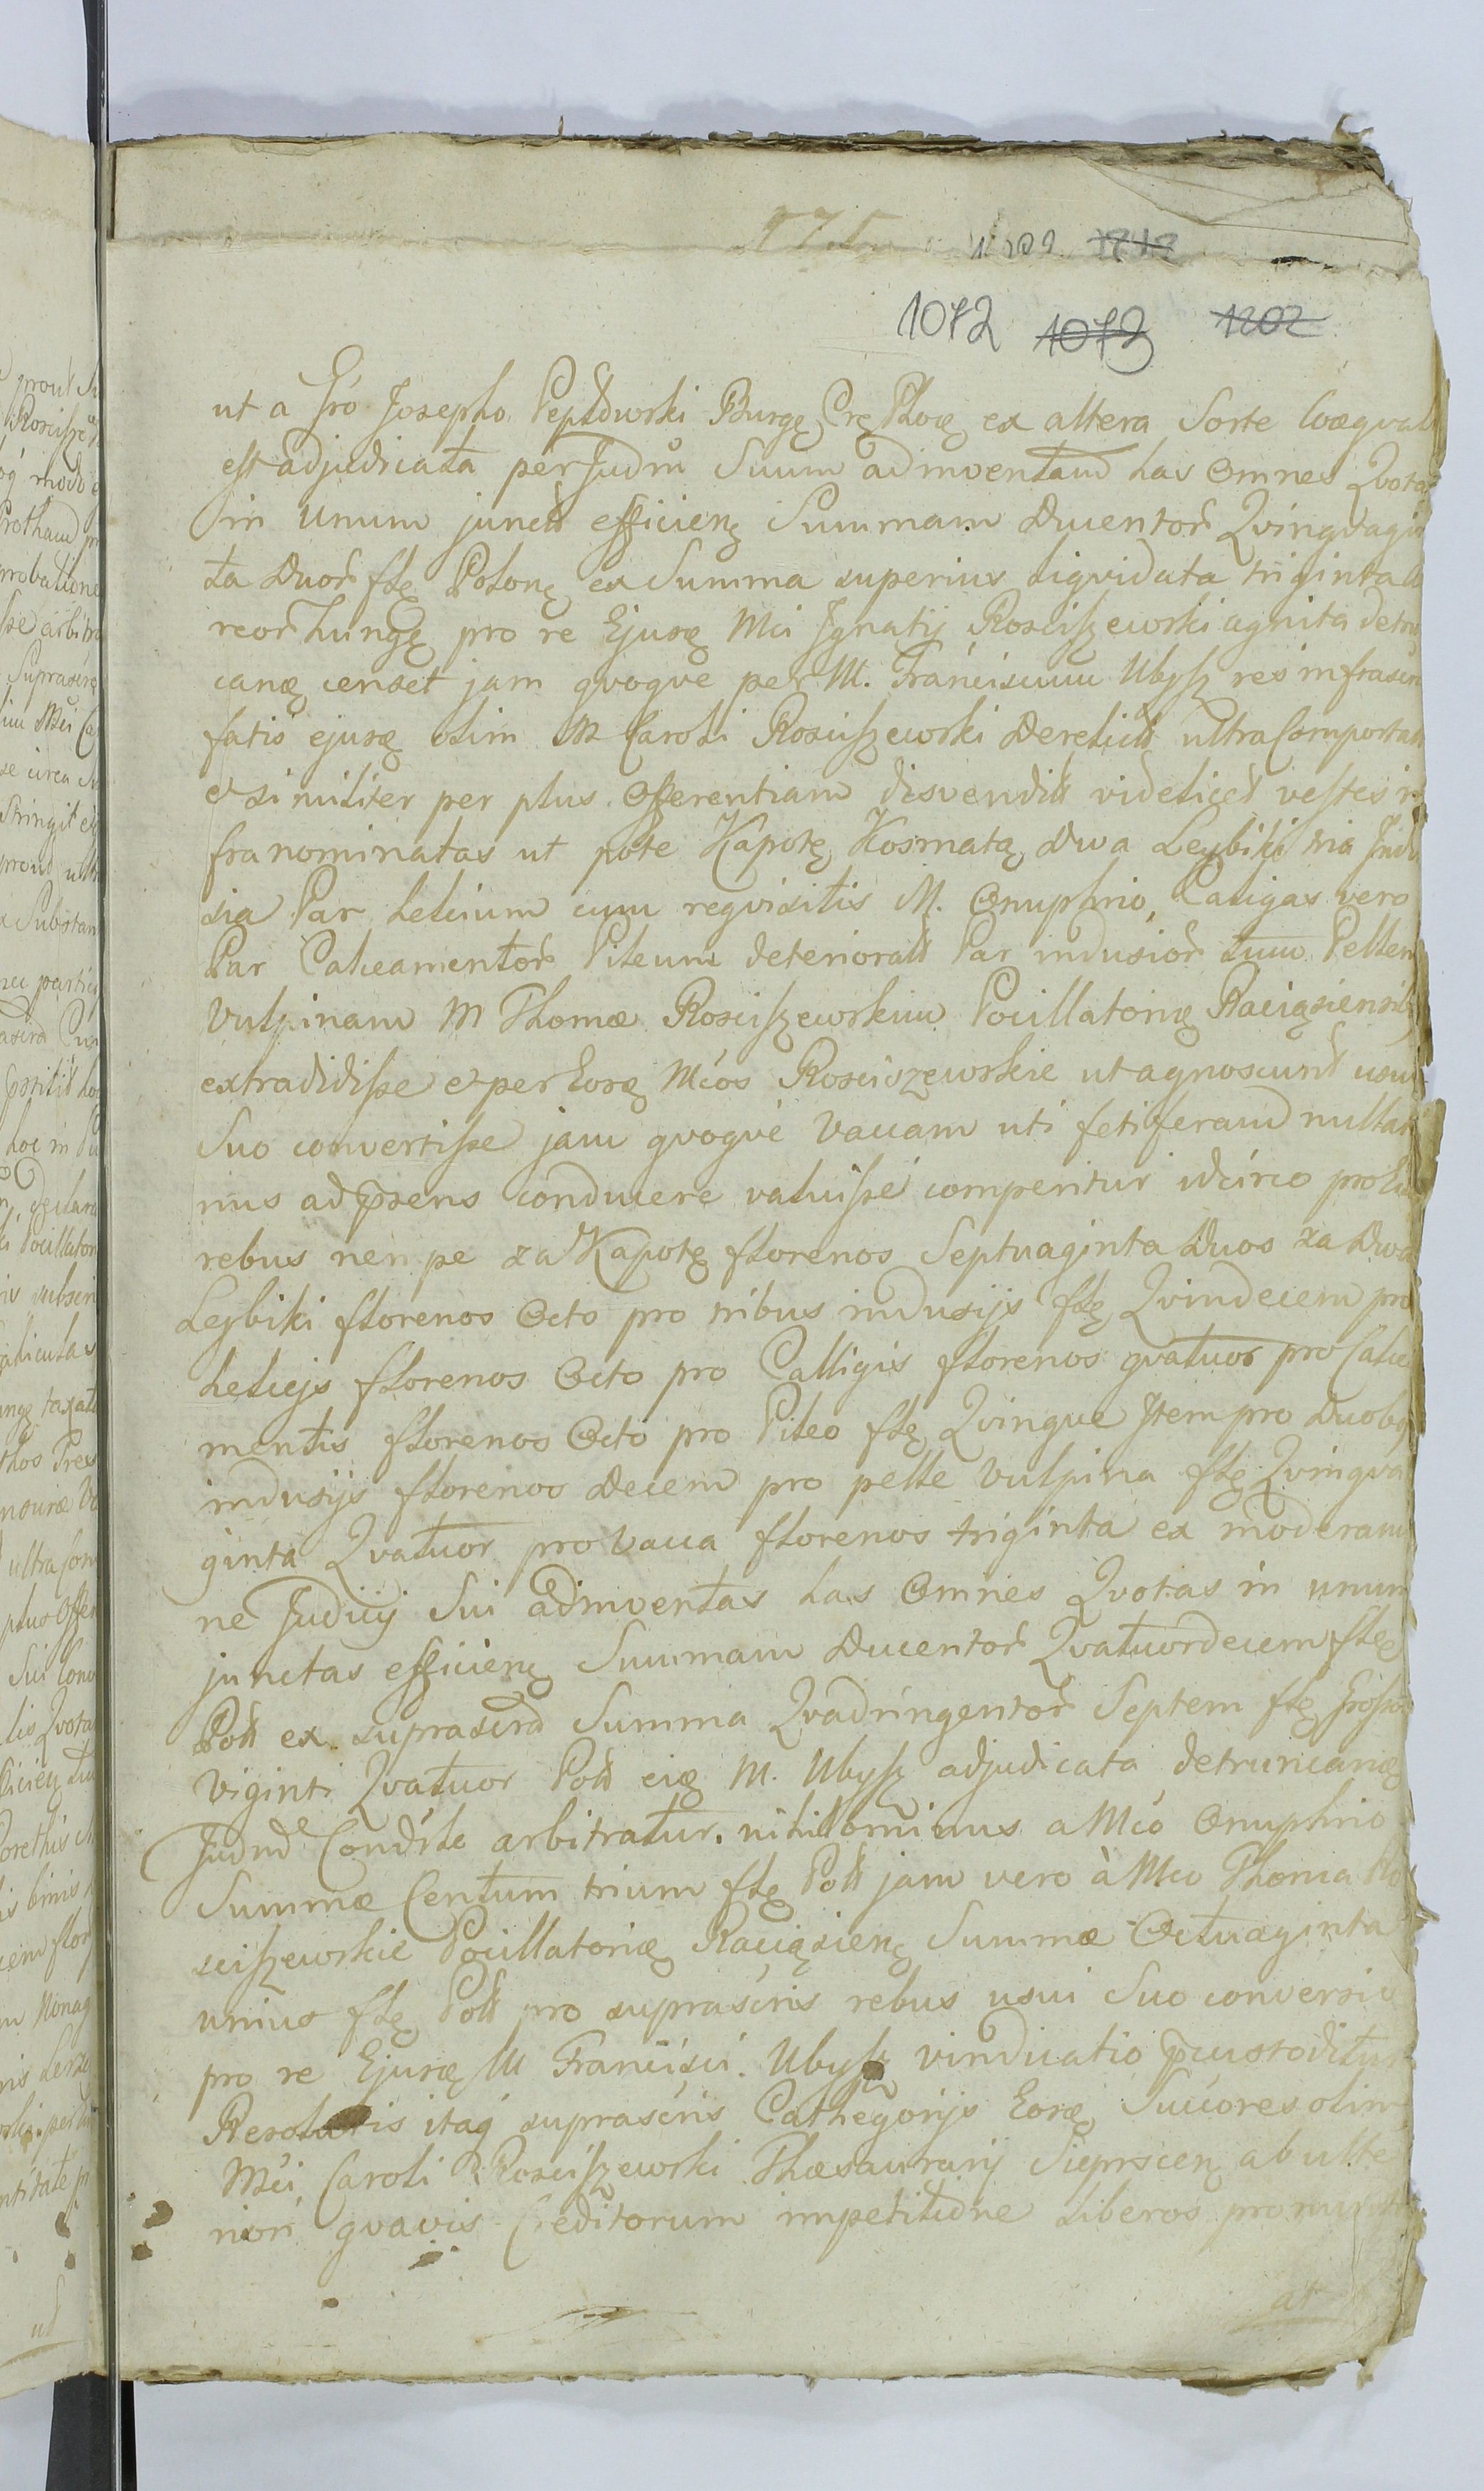 1072 1073 1202
ut a Gro Josepho Peplowski Burgę Crę Plocę ex altera Sorte Coæqvali
est adjudicata per Judm Suum adinventam has omnes Qvotas
in unum junctas efficienę Summam Ducentor Qvinqvagin
ta Duor flę Polonę ex Summa superius liqvidata triginta
reor hungę pro re Ejusę Mci Jgnatij Rosciszewski agnita detrun
canę censet jam qvoqve per M. Franciscum Ubysz res infrascri
fatis ejusę olim M Caroli Rosciszewski derelictas ultra Comportatas
et similiter per plus Offerentiam disvenditas videlicet vestes in
franominatas ut pote Kapotę Kosmatą dwa Leybiki tria Indu
sia Par helcium cum reqvisitis M. Onuphrio, Caligas vero
Par Calceamentor Pileum deteriorat Par indusior tum Pellem
Vulpinam M Thomæ Rosciszewskim Pocillatorię Raciąziensibę
extradidisse et per Eosę Mcos Rosciszewskie ut agnoscunt usui
Suo convertisse jam qvoqve Vaccam uti fetiferam nullate
nus ad præsens conducere valuisse comperitur idcirco pro his
rebus nempe za Kapotę florenos Septuaginta Duos za Dwa
Leybiki florenos Octo pro tribus indusijs flę Qvindecem pro
helcijs florenos Octo pro Calligis florenos qvatuor pro Calcea
mentis florenos Octo pro Pileo flę Qvinqve Item pro Duobę
indusijs florenos Decem pro pelle Vulpina flę Qvinqva
ginta Qvatuor pro Vacca florenos triginta ex moderami
ne Judicij Sui adinventas has Omnes Qvotas in unum
junctas efficienę Summam Ducentor Qvatuordecem flę
Poll ex suprascrta Summa Qvadringentor Septem flę Grossor
Viginti Qvatuor Poll eię M. Ubysz adjudicata detruncanę
Judm Condrle arbitratur. nihilominus a Mco Onuphrio
Summæ Centum trium flę Poll jam vero à Mco Thoma Ro
sciszewskie Pocillatorię Raciązienę Summæ Octuaginta
unius flę Poll pro suprascris rebus usui Suo conversis
pro re Ejusę M Francisci Ubysz vindicatio præcustoditur
Resolutis itaq suprascris Cathegorijs Eosę Succores olim
Mci Caroli Rosciszewski Thæsaurarij Sieprscenę ab ulte
riori qvavis Creditorum impetitione liberos pronunti
at